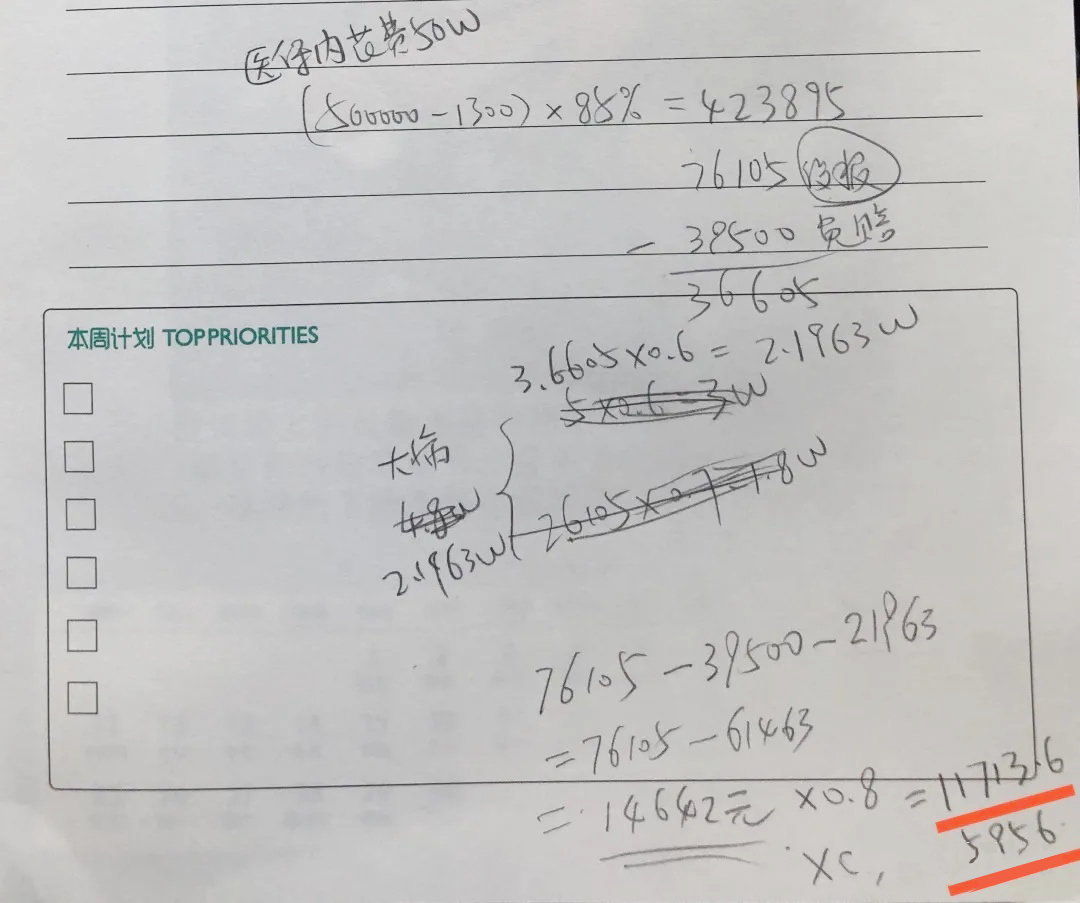 医保内花费50W
(500000-1300)×85%=423895
76105 没报
- 39500 员赔
36605
本周计划 TOP PRIORITIES
3.6605×0.6=2.1963W
5×0.6=3W
大病
4.8W
26105×0.7=1.8W
2.1963W
76105-39500-21963
=76105-61463
=14642元 ×0.8 =11713.6
5956